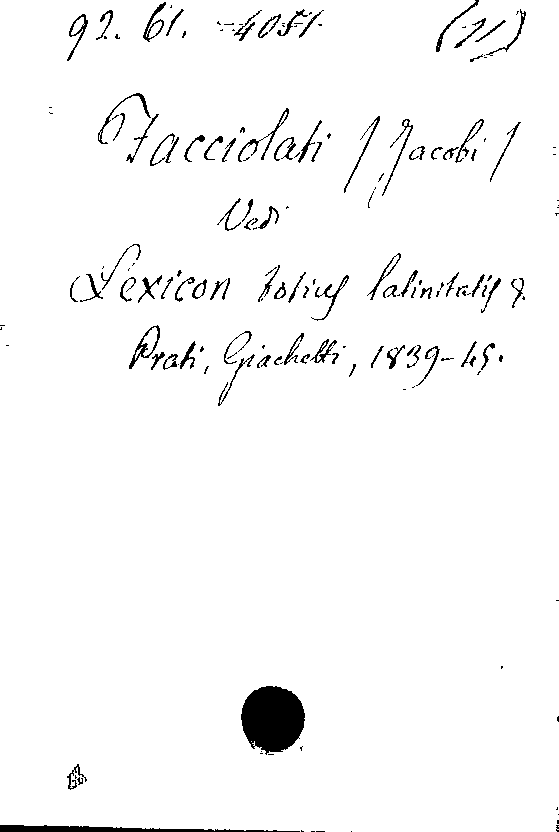 92. 61. 4051 (11)
Facciolati / Jacobi /
Vedi
Lexicon totius latinitatis &.
Prati, Giachetti, 1839-45.